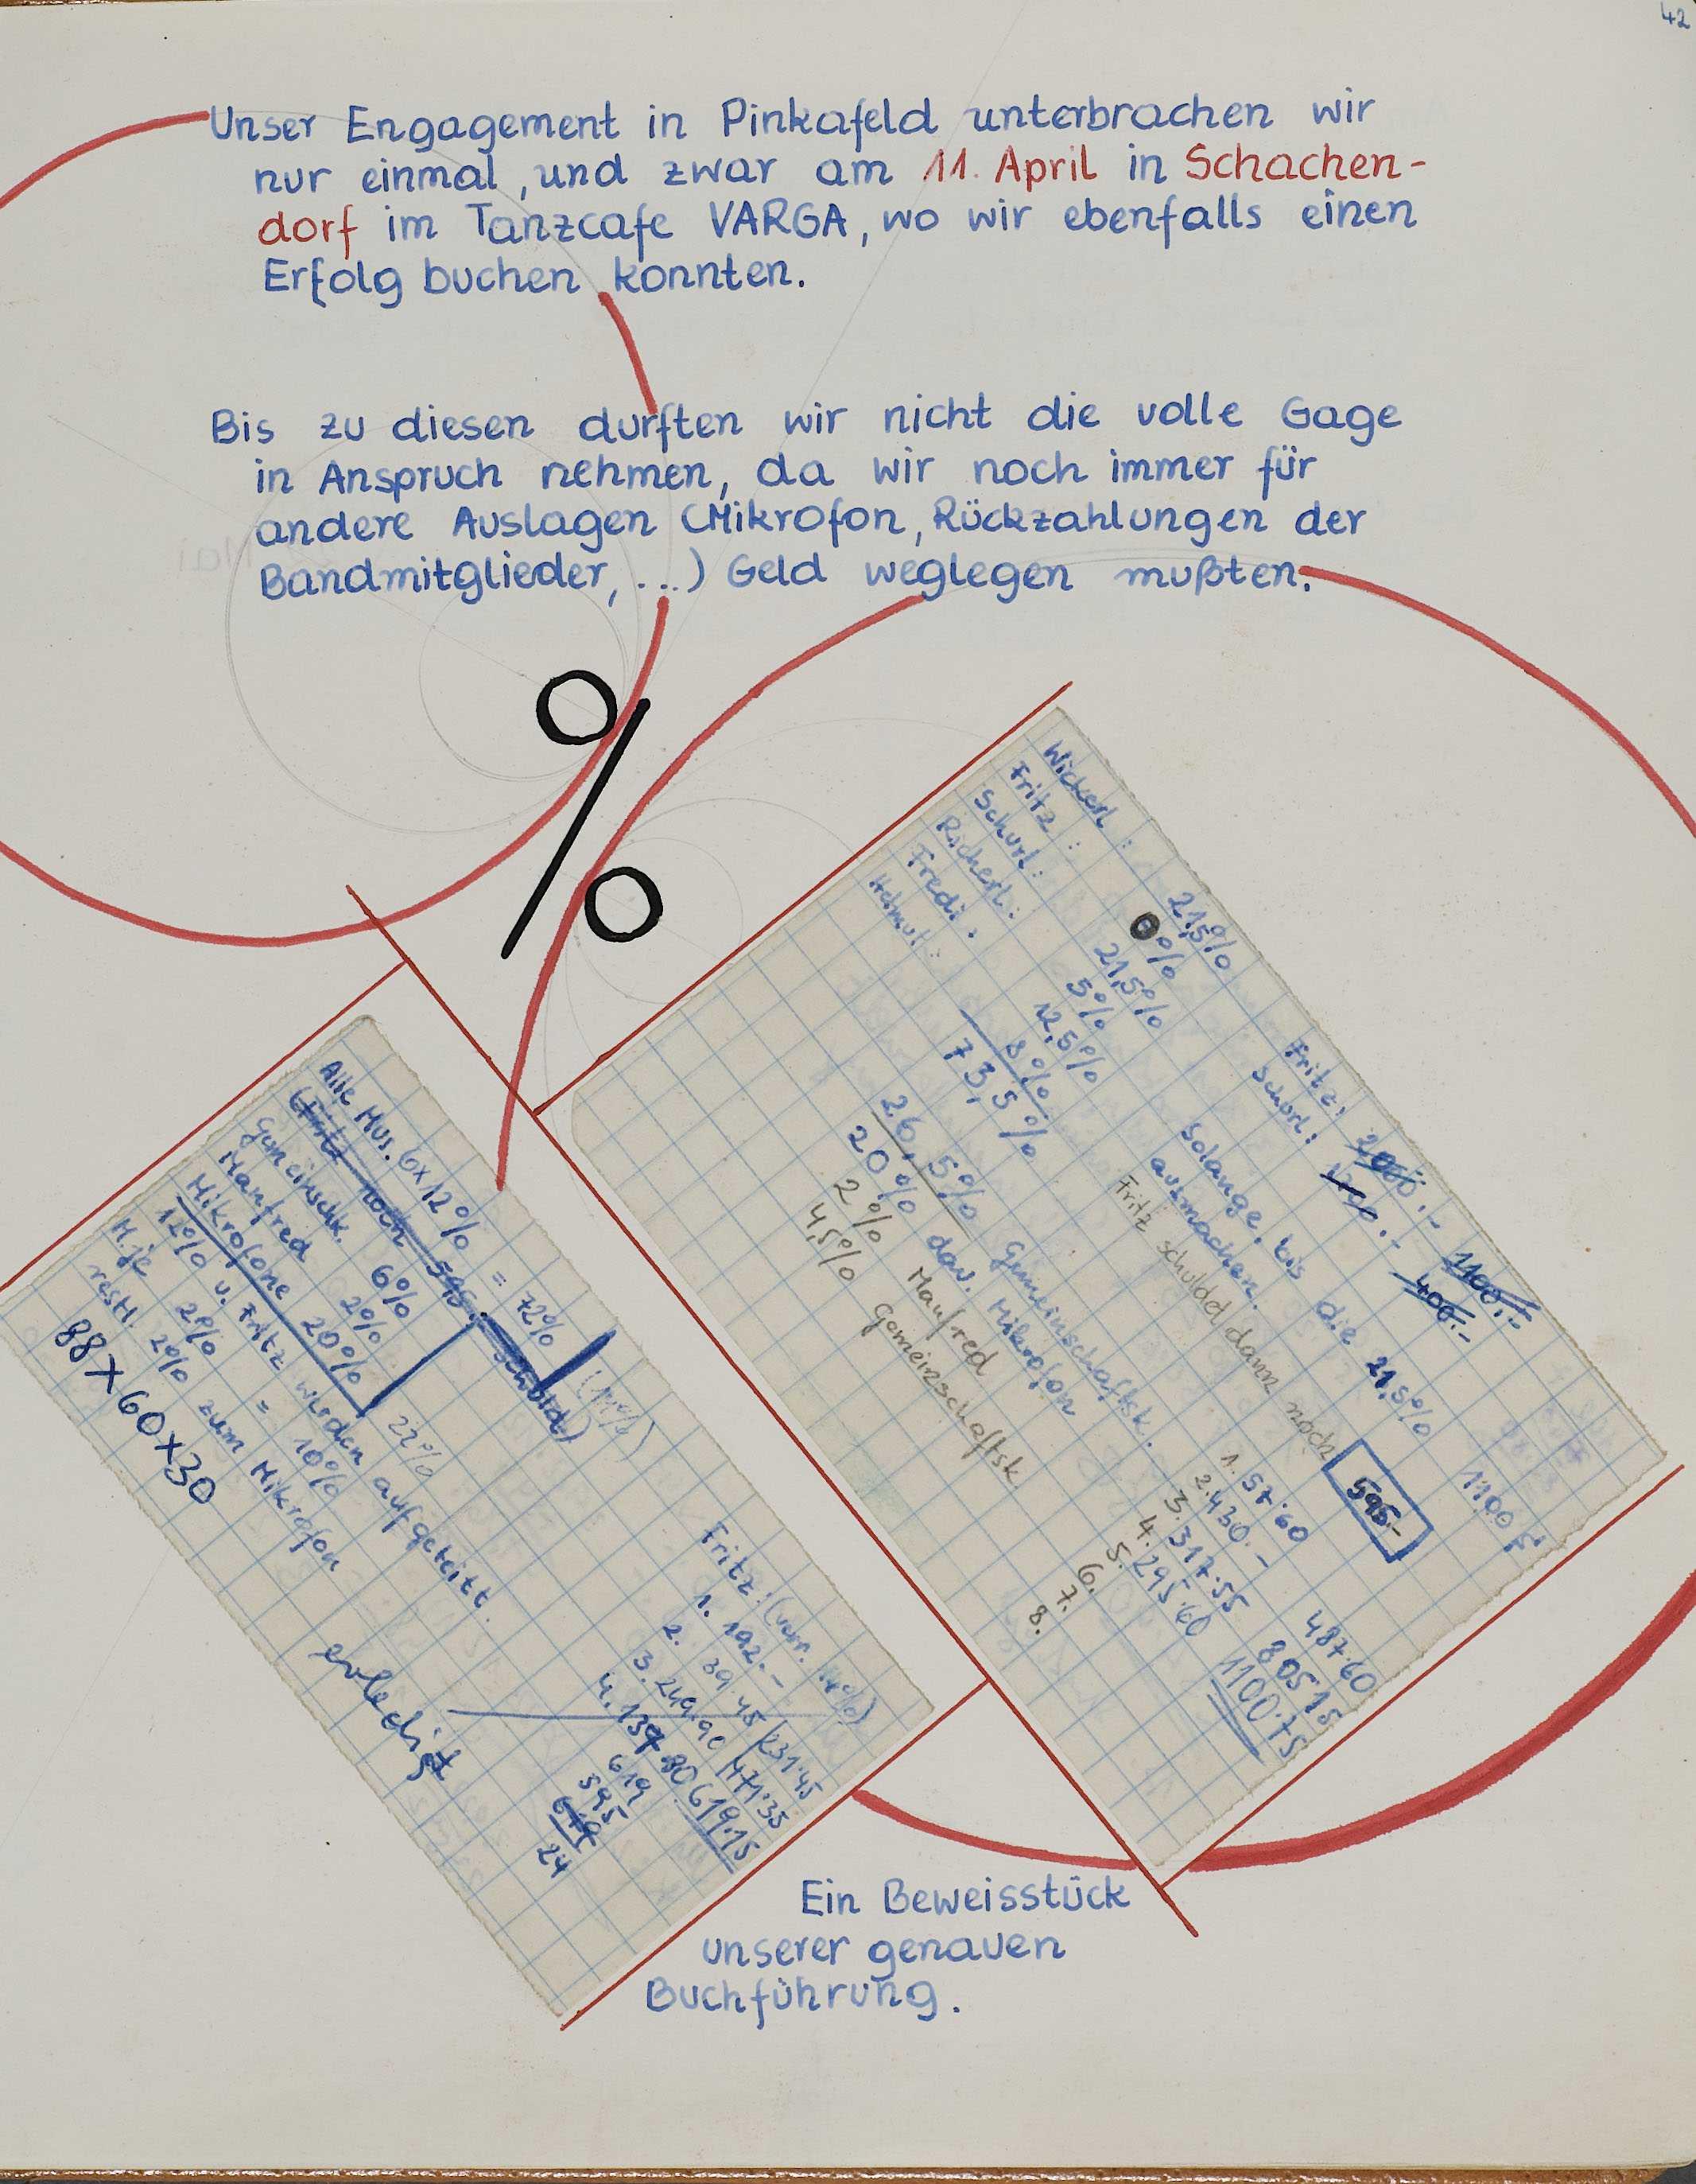 42
Unser Engagement in Pinkafeld unterbrachen wir
nur einmal, und zwar am 11. April in Schachen-
dorf im Tanzcafe VARGA, wo wir ebenfalls einen
Erfolg buchen konnten.
Bis zu diesen durften wir nicht die volle Gage
in Anspruch nehmen, da wir noch immer für
andere Auslagen (Mikrofon, Rückzahlungen der
Bandmitglieder, ...) Geld weglegen mußten.
%
Wickerl: 21,5%
Fritz: 0%
Schurl: 21,5%
Richerl: 5%
Fredi: 12,5%
Helmut: 8%
73,5%
26,5% Gemeinschaftsk.
20% dav. Mikrofon
2% Manfred
4,5% Gemeinschaftsk
Fritz: 1100.-
Schurl: 400.-
Solange, bis die 21,5% 1100 S
ausmachen.
Fritz schuldet dann noch 595.-
1. 57.60
2. 430.- 487.60
3. 317.55 805.15
4. 295.60 1100.75
5.
6.
7.
8.
Alle Mus. 6x12% = 72%
(Fritz noch 595.- schuld.)
Gemeinschk. 6%
Manfred 2%
Mikrofone 20% 22%
12% v. Fritz werden aufgeteilt.
M. je 2% = 10%
restl. 2% zum Mikrofon
88x60x30
erledigt
Fritz:
1. 192.-
2. 39.45 231.45
3. 249.90 471.35
4. 137.80 619.15
619
595
24
Ein Beweisstück
unserer genauen
Buchführung.